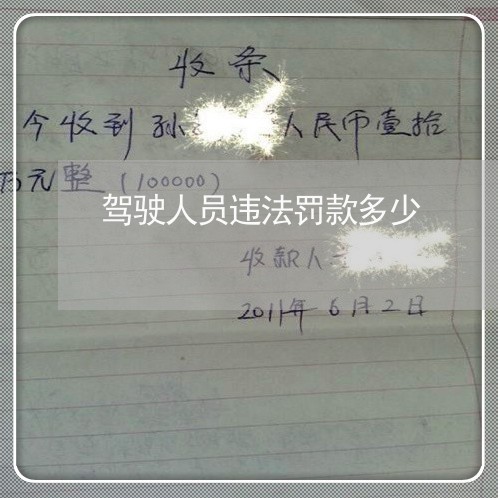 收条
今收到孙 人民币壹拾
万元整(100000)
驾驶人员违法罚款多少
收款人
2011年6月2日